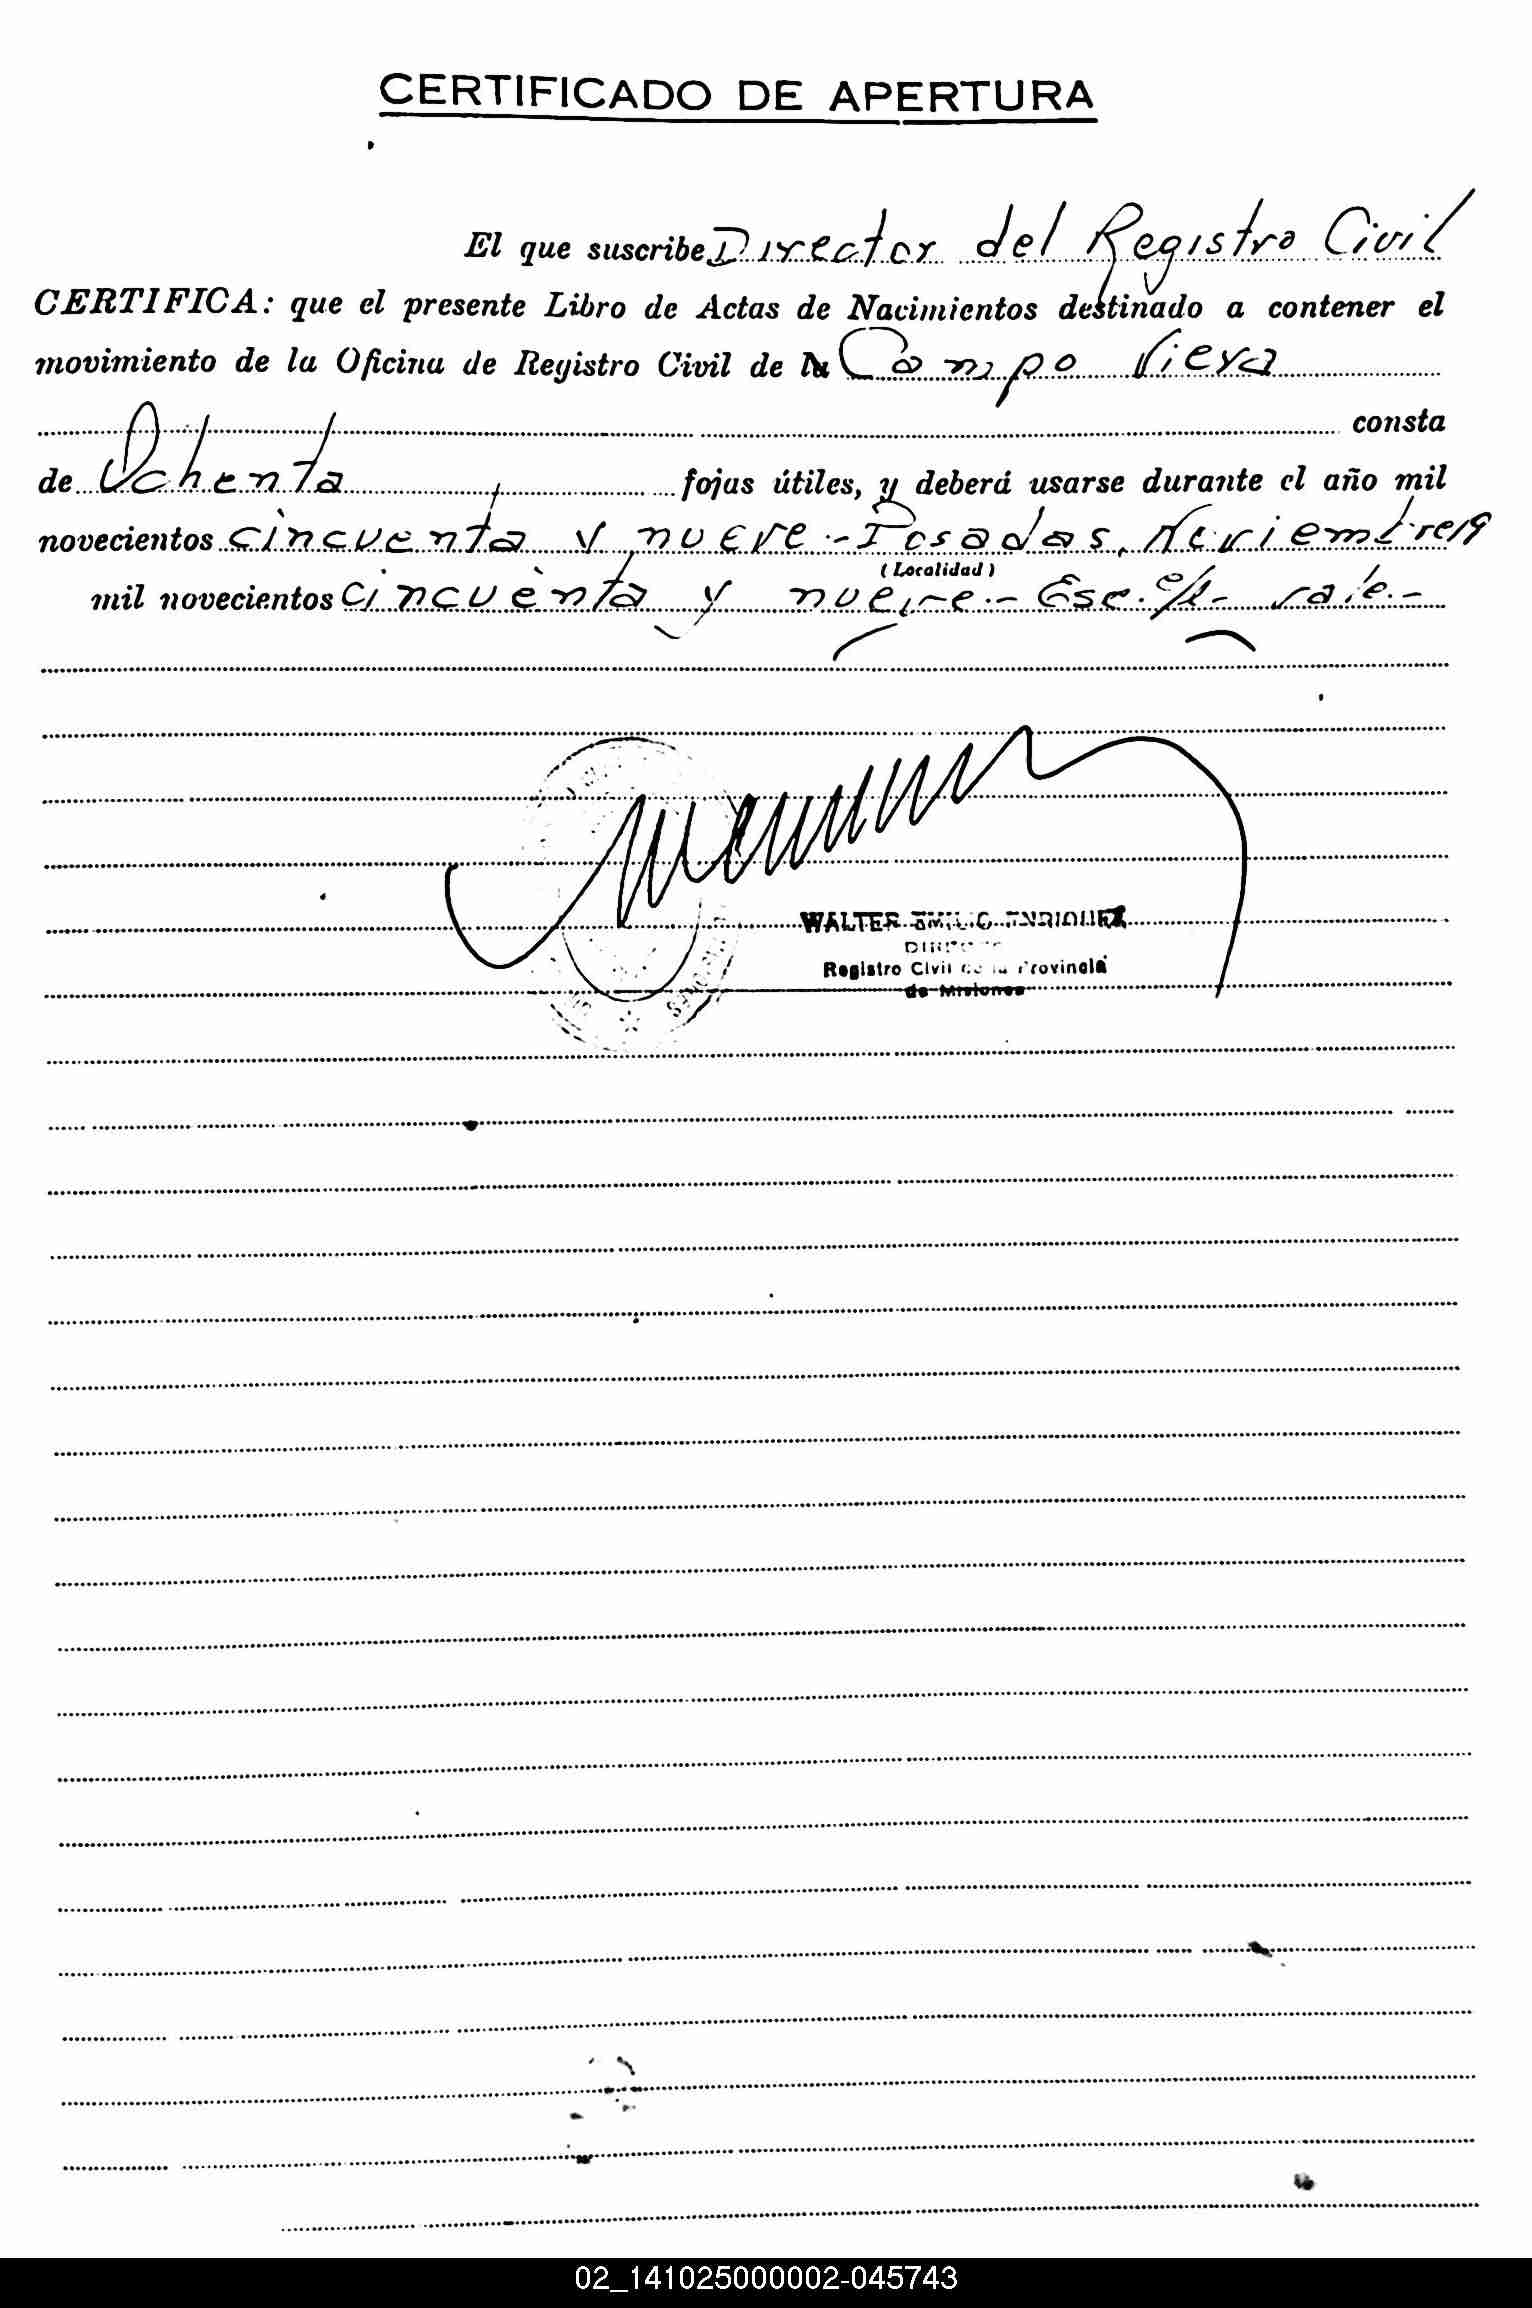 CERTIFICADO DE APERTURA
El que suscribe Director del Registro Civil
CERTIFICA: que el presente Libro de Actas de Nacimientos destinado a contener el
movimiento de la Oficina de Registro Civil de la Campo Viera
consta
de Ochenta fojas útiles, y deberá usarse durante el año mil
novecientos cincuenta y nueve.- Posadas, Noviembre 19
(Localidad)
mil novecientos cincuenta y nueve.- Esc. e/l- vale.-
WALTER EMILIO ENRIQUEZ
DIRECTOR
Registro Civil de la Provincia
de Misiones
02_141025000002-045743